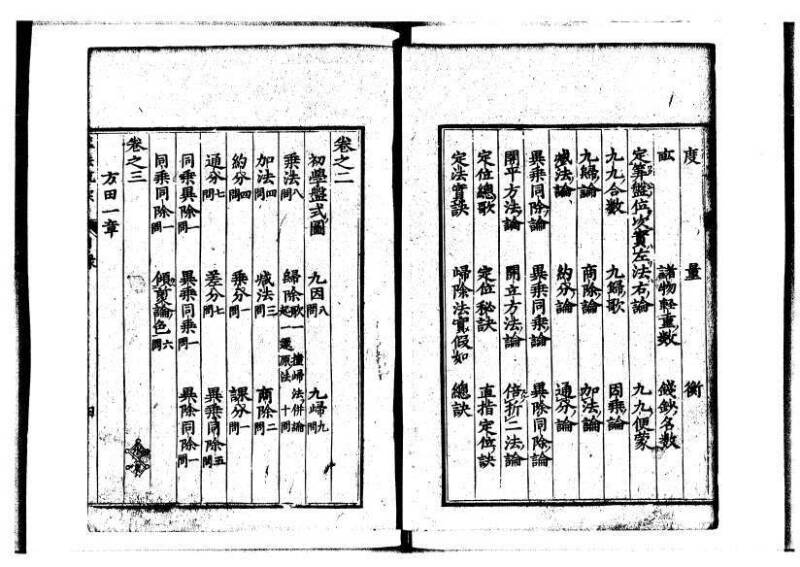 度 量 衡
畝 諸物軽重数 錢鈔名数
定筭盤位次實左法右論
九九合数 九歸歌 九九便蒙
九歸論 商除論 因乗論
减法論 約分論 加法論
異乗同除論 異乗同乗論 通分論
開平方法論 開立方法論 異除同除論
定位總歌 定位秘訣 倍折二法論
定法實訣 歸除法實假如 直指定位訣
總訣
卷之二
初學盤式圖 九因八問 九歸九問
乗法八問 歸除歌一 起一還原法 撞歸法併論十問
加法四問 减法三問 商除二問
約分四問 乗分一問 課分一問
通分七問 差分七問 異乗同除五問
同乗異除一問 異乗同乗一問 異除同除一問
同乗同除一問 傾煎論色六問
卷之三
方田一章